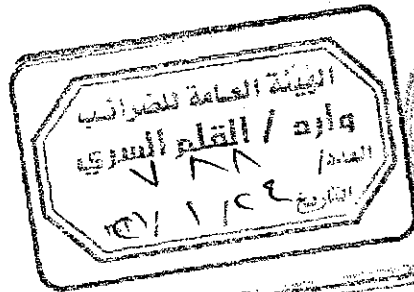 الهيئة العامة للضرائب
وارد / القلم السري
العدد/ ٧٨٨
التاريخ ٢٤/ ١ /